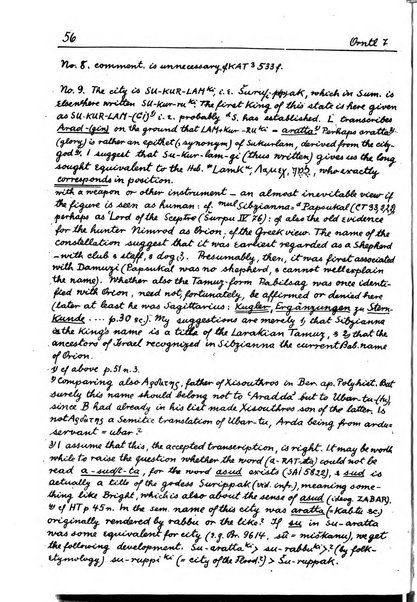 56
Orntl 7
No. 8. comment. is unnecessary, cf KAT³ 533f.
No. 9. The city is SU-KUR-LAM ki, i.e. Šuruppak, which in Sum. is
elsewhere written SU-KUR-ru ki. The first King of this state is here given
as SU-KUR-LAM-(GI)¹⁾ i.e. probably *S. has established. L. transcribes
Arad-(gin) on the ground that LAM + Kur-RU ki = aratta²⁾ Perhaps aratta³⁾
(glory) is rather an epithet (, synonym) of Sukurlam, derived from the city-
god⁴⁾. I suggest that Su-Kur-lam-gi (thus written) gives us the long
sought equivalent to the Hd. "Lamk", Λαμεχ, who exactly
corresponds in position.
with a weapon or other instrument – an almost inevitable view if
the figure is seen as human: cf. mul Sibzianna = Papsukal (CT 33,22ff)
perhaps as 'Lord of the Sceptre' (Surpu IV 76): cf also the old evidence
for the hunter Nimrod as Orion, cf the Greek view. The name of the
constellation suggest that it was earliest regarded as a Shepherd
– with club & staff, & dog:?. Presumably, then, it was first associated
with Damuzi (Papsukal was no shepherd, & cannot well explain
the name). Whether also the Tamuz-form Pabilsag was once identi-
fied with Orion, need not, fortunately, be affirmed or denied here
(later at least he was Sagittarius: Kugler, Ergänzungen zu Stern-
Kunde .... p.30 &c). My suggestions are merely 1, that Sibzianna
as the King's name is a title of the Larakian Tamuz, & 2, that the
ancestors of Israel recognized in Sibzianna the current Bab. name
of Orion.
¹⁾ cf above p.51 n.3.
²⁾ Comparing also Αρδατης, father of Xisouthros in Ber. ap. Polyhist. But
surely this name should belong not to 'Aradda' but to Ubar-tu-(tu),
since B had already in his list made Xisouthros son of the latter. Is
not Αρδατης a Semitic translation of Ubar-tu, Arda being from ardu =
servant = ubar?
³⁾ I assume that this, the accepted transcription, is right. It may be worth
while to raise the question whether the word (a-RAT-ta) could not be
read a-sud/t-ta, for the word asud exists (SAI 5822), & sud is
actually a title of the godess Surippak (vid. infr.), meaning some-
thing like Bright, which is also about the sense of asud (ideog. ZABAR).
⁴⁾ cf HT p 45 n. In the sem. name of this city was aratta (= Kabtu &c)
originally rendered by rabbu or the like? If su in Su-aratta
was some equivalent for city (e.g. Br. 9614, sū = miškanu), we get
the following development. Su-aratta ki > su-rabbu ki > (by folk-
etymology) su-ruppi ki (= city of the Flood?) > Su-ruppak.